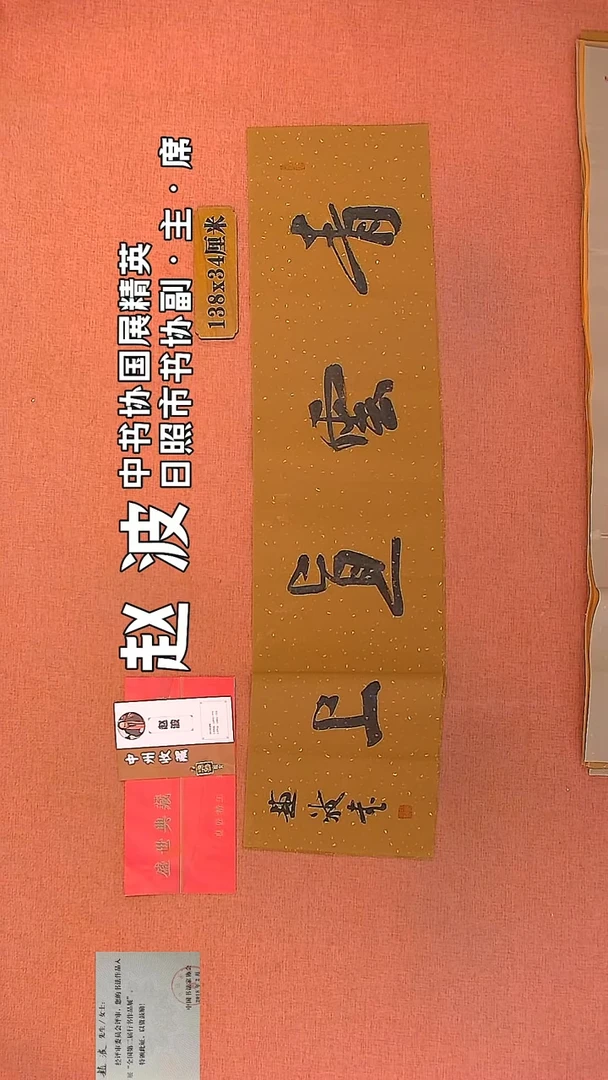 赵 波
中书协国展精英
日照市书协副·主·席
138x34厘米
青雲直上
赵波书
赵波
中州收藏
盛世典藏
赵波 先生/女士:
经评审委员会评审,您的书法作品入
展“全国第二届行书作品展”,
特颁此证,以资鼓励!
中国书法家协会